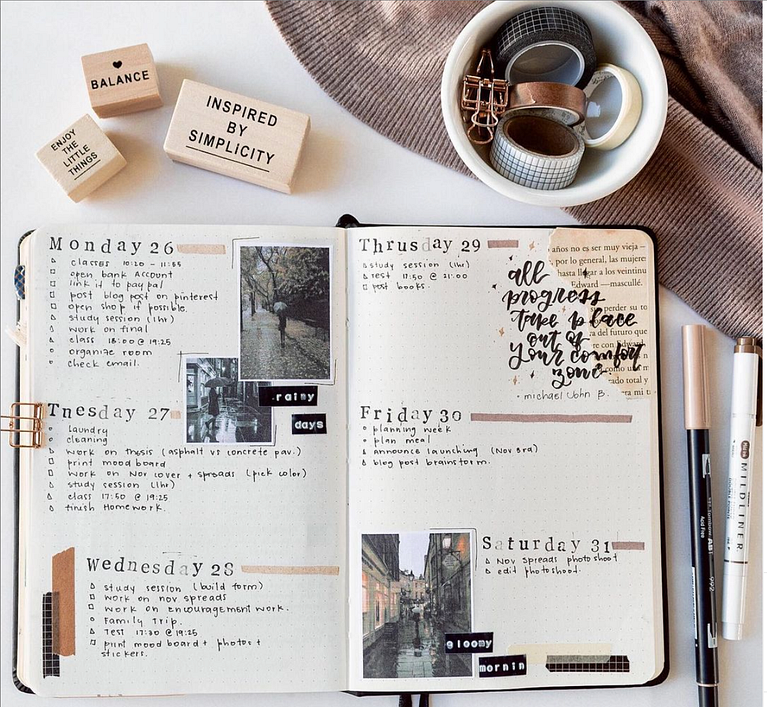 BALANCE
INSPIRED
BY
SIMPLICITY
ENJOY
THE
LITTLE
THINGS
Monday 26
classes 10:20 - 11:55
open bank Account
link it to paypal
post blog post on pinterest
open shop if possible.
study session (1hr)
work on final
class 18:00 @ 19:25
organize room
check email.
.rainy
days
Tnesday 27
laundry
cleaning
work on thesis (asphalt vs concrete pav.)
print mood board
work on Nov cover + spreads (pick color)
study session (1hr)
class 17:50 @ 19:25
finish Homework.
Wednesday 28
study session (build form)
work on nov spreads
work on encouragement work.
Family Trip.
Test 17:30 @ 19:25
print mood board + photos +
stickers.
Thrusday 29
study session (1hr)
test 17:50 @ 21:00
post books.
años no es ser muy vieja —
por lo general, las mujeres
hasta llegar a los veintinu
Edward —masculló.
perder su
all
progress
take place
out of
your comfort
zone.
- michael John B.
Friday 30
planning week
plan meal
announce launching (Nov 3ra)
blog post brainstorm.
Saturday 31
Nov spreads photoshoot
edit photoshoot.
gloomy
mornin
MILDLINER